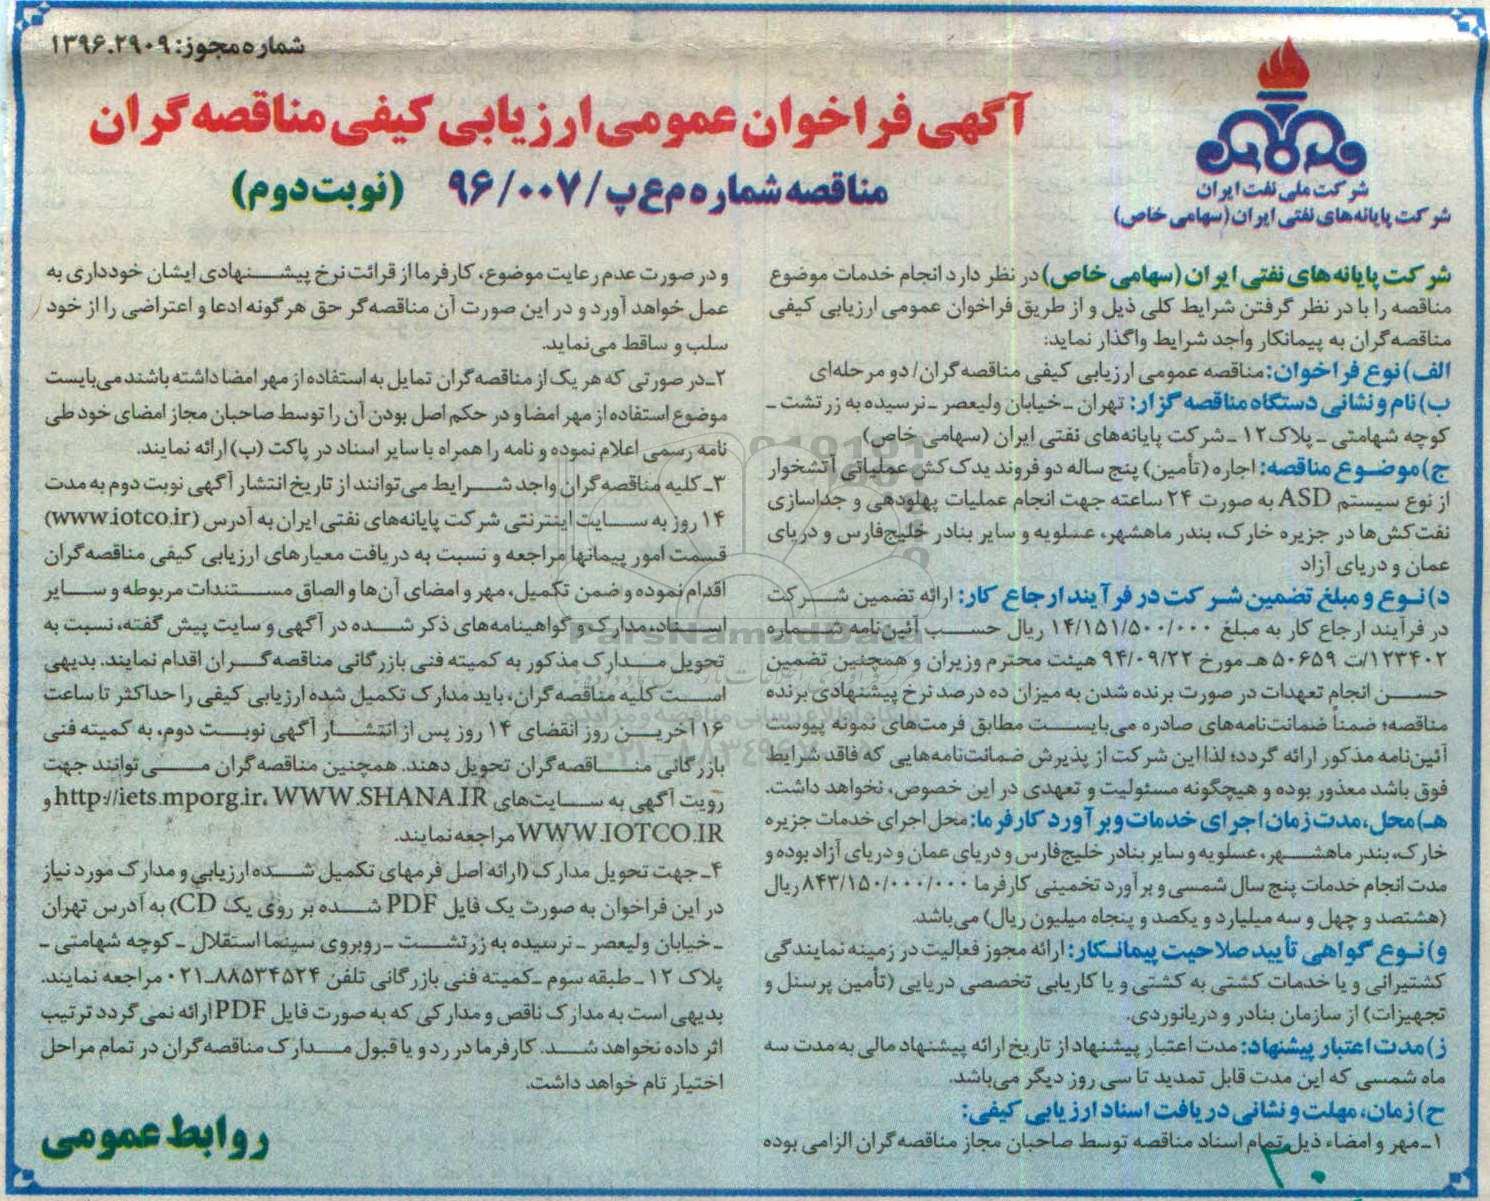 شماره مجوز: ۱۳۹۶.۲۹۰۹
آگهی فراخوان عمومی ارزیابی کیفی مناقصه گران
مناقصه شماره م ع پ / ۹۶/۰۰۷ (نوبت دوم)
شرکت ملی نفت ایران
شرکت پایانه های نفتی ایران (سهامی خاص)
شرکت پایانه های نفتی ایران (سهامی خاص) در نظر دارد انجام خدمات موضوع
مناقصه را با در نظر گرفتن شرایط کلی ذیل و از طریق فراخوان عمومی ارزیابی کیفی
مناقصه گران به پیمانکار واجد شرایط واگذار نماید:
الف) نوع فراخوان: مناقصه عمومی ارزیابی کیفی مناقصه گران/ دو مرحله ای
ب) نام و نشانی دستگاه مناقصه گزار: تهران ـ خیابان ولیعصر ـ نرسیده به زرتشت ـ
کوچه شهامتی ـ پلاک ۱۲ ـ شرکت پایانه های نفتی ایران (سهامی خاص)
ج) موضوع مناقصه: اجاره (تأمین) پنج ساله دو فروند یدک کش عملیاتی آتشخوار
از نوع سیستم ASD به صورت ۲۴ ساعته جهت انجام عملیات پهلودهی و جداسازی
نفت کش ها در جزیره خارک، بندر ماهشهر، عسلویه و سایر بنادر خلیج فارس و دریای
عمان و دریای آزاد
د) نوع و مبلغ تضمین شرکت در فرآیند ارجاع کار: ارائه تضمین شرکت
در فرآیند ارجاع کار به مبلغ ۱۴/۱۵۱/۵۰۰/۰۰۰ ریال حسب آئین نامه شماره
۱۲۳۴۰۲/ت ۵۰۶۵۹ هـ مورخ ۹۴/۰۹/۲۲ هیئت محترم وزیران و همچنین تضمین
حسن انجام تعهدات در صورت برنده شدن به میزان ده درصد نرخ پیشنهادی برنده
مناقصه؛ ضمناً ضمانت نامه های صادره می بایست مطابق فرمت های نمونه پیوست
آئین نامه مذکور ارائه گردد؛ لذا این شرکت از پذیرش ضمانت نامه هایی که فاقد شرایط
فوق باشد معذور بوده و هیچگونه مسئولیت و تعهدی در این خصوص، نخواهد داشت.
هـ) محل، مدت زمان اجرای خدمات و برآورد کارفرما: محل اجرای خدمات جزیره
خارک، بندر ماهشهر، عسلویه و سایر بنادر خلیج فارس و دریای عمان و دریای آزاد بوده و
مدت انجام خدمات پنج سال شمسی و برآورد تخمینی کارفرما ۸۴۳/۱۵۰/۰۰۰/۰۰۰ ریال
(هشتصد و چهل و سه میلیارد و یکصد و پنجاه میلیون ریال) می باشد.
و) نوع گواهی تأیید صلاحیت پیمانکار: ارائه مجوز فعالیت در زمینه نمایندگی
کشتیرانی و یا خدمات کشتی به کشتی و یا کاریابی تخصصی دریایی (تأمین پرسنل و
تجهیزات) از سازمان بنادر و دریانوردی.
ز) مدت اعتبار پیشنهاد: مدت اعتبار پیشنهاد از تاریخ ارائه پیشنهاد مالی به مدت سه
ماه شمسی که این مدت قابل تمدید تا سی روز دیگر می باشد.
ح) زمان، مهلت و نشانی دریافت اسناد ارزیابی کیفی:
۱ـ مهر و امضاء ذیل تمام اسناد مناقصه توسط صاحبان مجاز مناقصه گران الزامی بوده
و در صورت عدم رعایت موضوع، کارفرما از قرائت نرخ پیشنهادی ایشان خودداری به
عمل خواهد آورد و در این صورت آن مناقصه گر حق هر گونه ادعا و اعتراضی را از خود
سلب و ساقط می نماید.
۲ـ در صورتی که هر یک از مناقصه گران تمایل به استفاده از مهر امضا داشته باشند می بایست
موضوع استفاده از مهر امضا و در حکم اصل بودن آن را توسط صاحبان مجاز امضای خود طی
نامه رسمی اعلام نموده و نامه را همراه با سایر اسناد در پاکت (ب) ارائه نمایند.
۳ـ کلیه مناقصه گران واجد شرایط می توانند از تاریخ انتشار آگهی نوبت دوم به مدت
۱۴ روز به سایت اینترنتی شرکت پایانه های نفتی ایران به آدرس (www.iotco.ir)
قسمت امور پیمانها مراجعه و نسبت به دریافت معیارهای ارزیابی کیفی مناقصه گران
اقدام نموده و ضمن تکمیل، مهر و امضای آن ها و الصاق مستندات مربوطه و سایر
اسناد، مدارک و گواهینامه های ذکر شده در آگهی و سایت پیش گفته، نسبت به
تحویل مدارک مذکور به کمیته فنی بازرگانی مناقصه گران اقدام نمایند. بدیهی
است کلیه مناقصه گران، باید مدارک تکمیل شده ارزیابی کیفی را حداکثر تا ساعت
۱۶ آخرین روز انقضای ۱۴ روز پس از انتشار آگهی نوبت دوم، به کمیته فنی
بازرگانی مناقصه گران تحویل دهند. همچنین مناقصه گران می توانند جهت
رویت آگهی به سایت های http://iets.mporg.ir، WWW.SHANA.IR و
WWW.IOTCO.IR مراجعه نمایند.
۴ـ جهت تحویل مدارک (ارائه اصل فرمهای تکمیل شده ارزیابی و مدارک مورد نیاز
در این فراخوان به صورت یک فایل PDF شده بر روی یک CD) به آدرس تهران
ـ خیابان ولیعصر ـ نرسیده به زرتشت ـ روبروی سینما استقلال ـ کوچه شهامتی ـ
پلاک ۱۲ ـ طبقه سوم ـ کمیته فنی بازرگانی تلفن ۸۸۵۳۴۵۲۴ـ۰۲۱ مراجعه نمایند.
بدیهی است به مدارک ناقص و مدارکی که به صورت فایل PDF ارائه نمی گردد ترتیب
اثر داده نخواهد شد. کارفرما در رد و یا قبول مدارک مناقصه گران در تمام مراحل
اختیار تام خواهد داشت.
روابط عمومی
ParsNamadData
۳۰